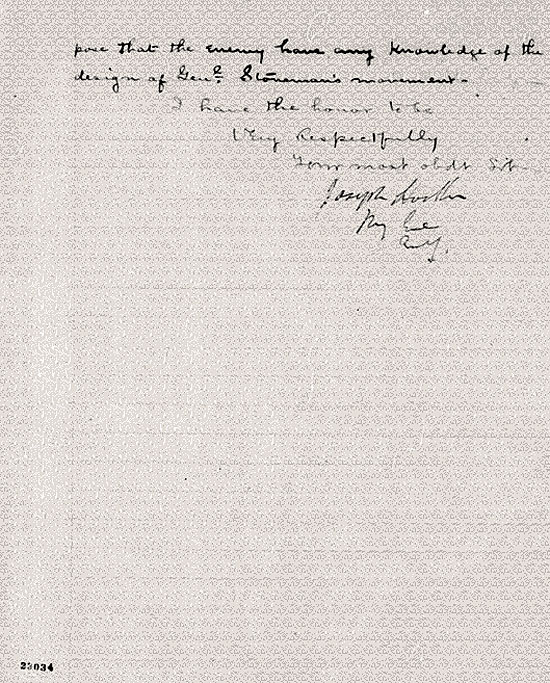 pose that the enemy have any Knowledge of the
design of Genl. Stoneman's movement.
I have the honor to be
Very Respectfully
Your most obdt Svt
Joseph Hooker
Maj Gen
23034